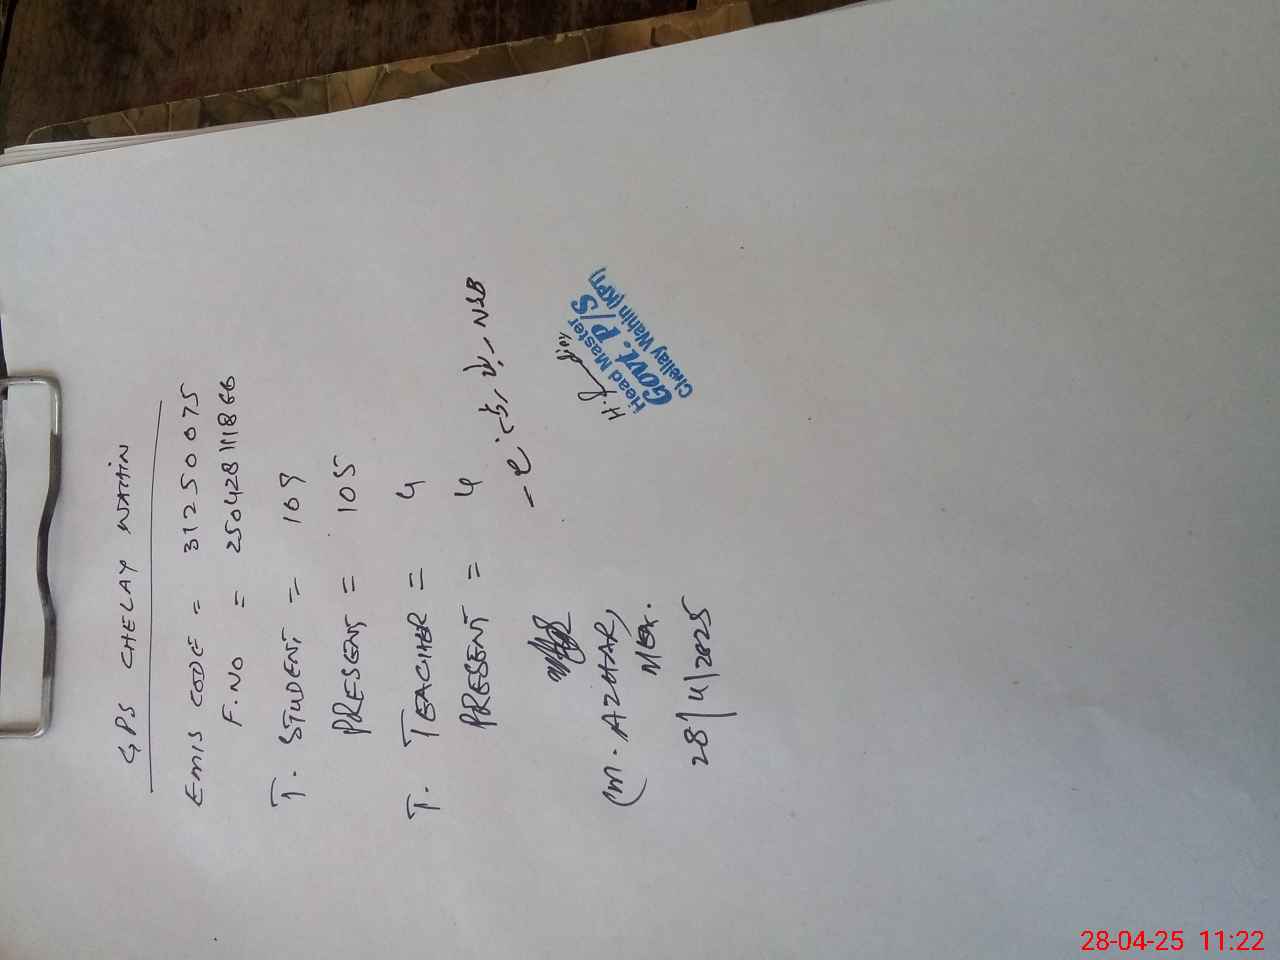 GPS CHELAY WAHIN
EMIS CODE = 31250075
F.NO = 250428111866
T. STUDENT = 109
PRESENT = 105
T. TEACHER = 4
PRESENT = 4
NSB
(M. AZHAR,
28/4/2025
Head Master
Govt. P/S
Chellay Wahin (KPT)
28-04-25 11:22